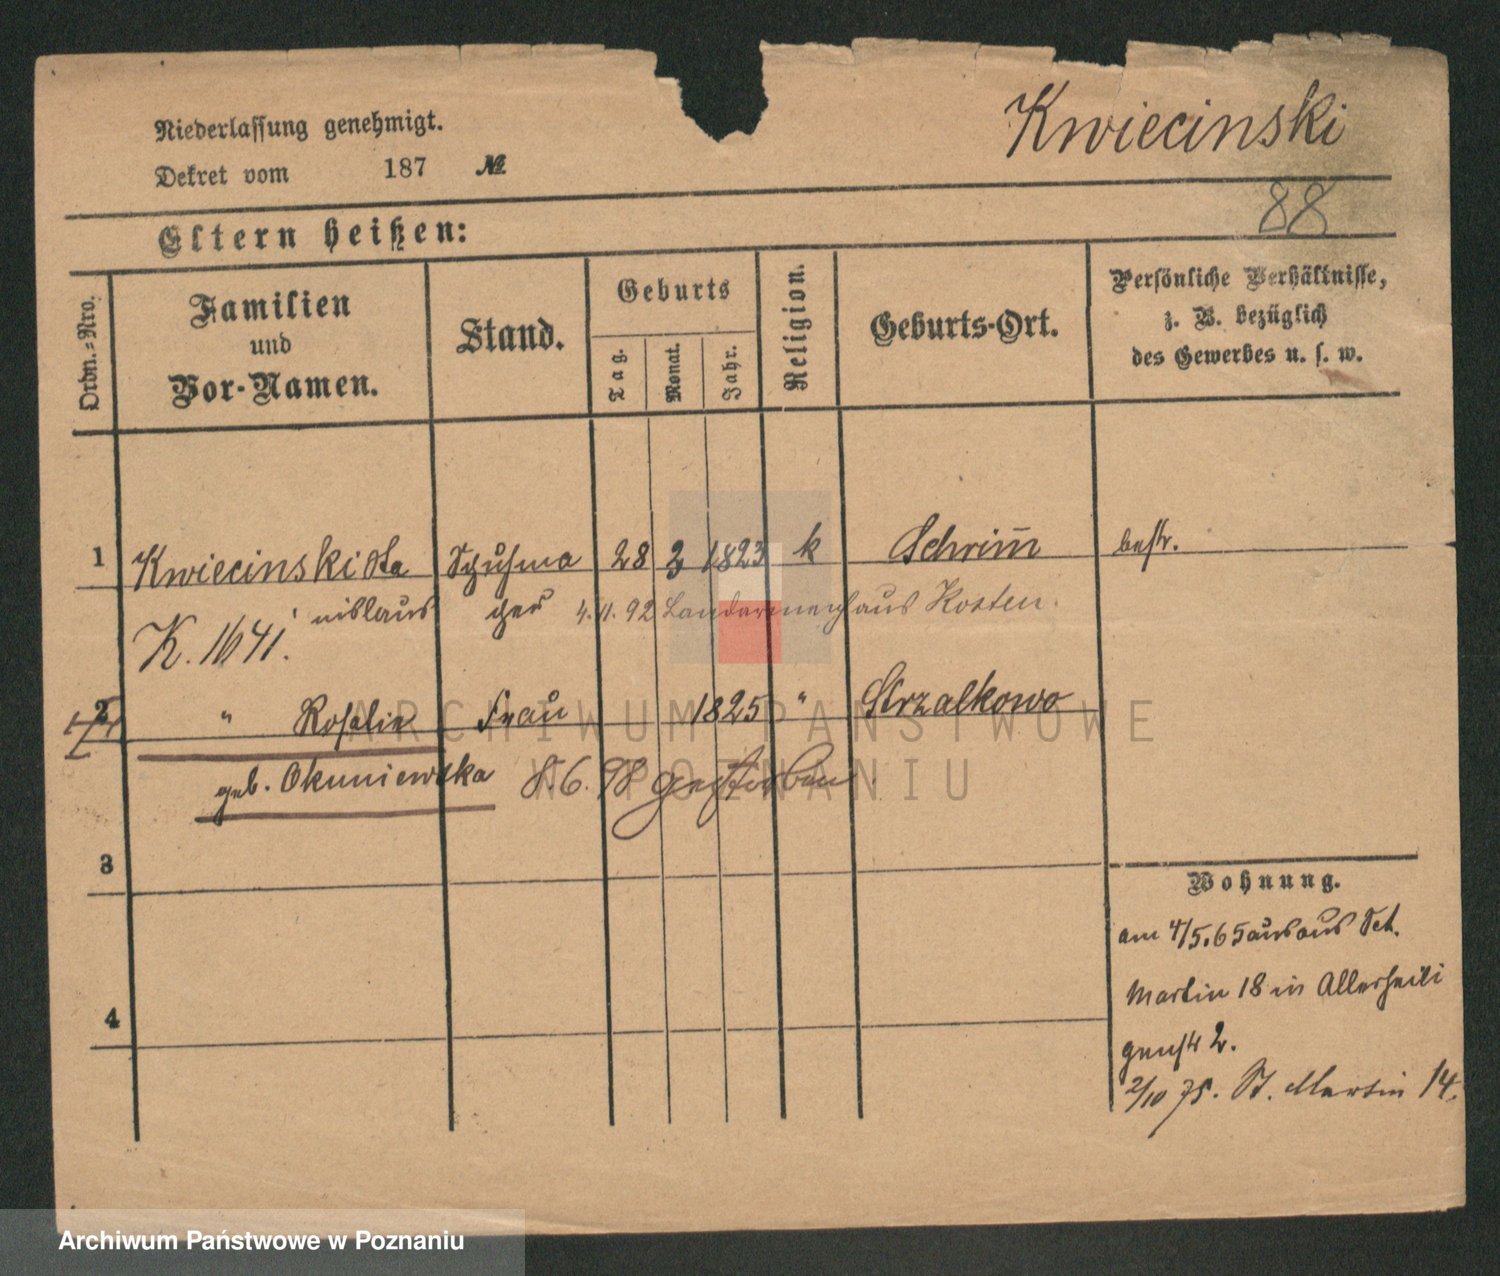 Niederlassung genehmigt.
Kwiecinski
Dekret vom 187 №
88
Eltern heißen:
Ordn.-Nro.
Familien
und
Vor-Namen.
Stand.
Geburts
Tag.
Monat.
Jahr.
Religion.
Geburts-Ort.
Persönliche Verhältnisse,
z. B. bezüglich
des Gewerbes u. s. w.
1 Kwiecinski Sta Schuhma 28 3 1823 k Schrim̄ bestr.
nislaus cher 4.11.92 Landarmenhaus Kosten.
K. 1641.
2 " Rosalie Frau 1825 " Strzalkowo
geb. Okuniewska 8.6.98 gestorben.
3
Wohnung.
am 4/5.65 aus aus Sct.
Martin 18 in Allerheili
genstr 2.
4
2/10 75. St. Martin 14.
ARCHIWUM PAŃSTWOWE
W POZNANIU
Archiwum Państwowe w Poznaniu